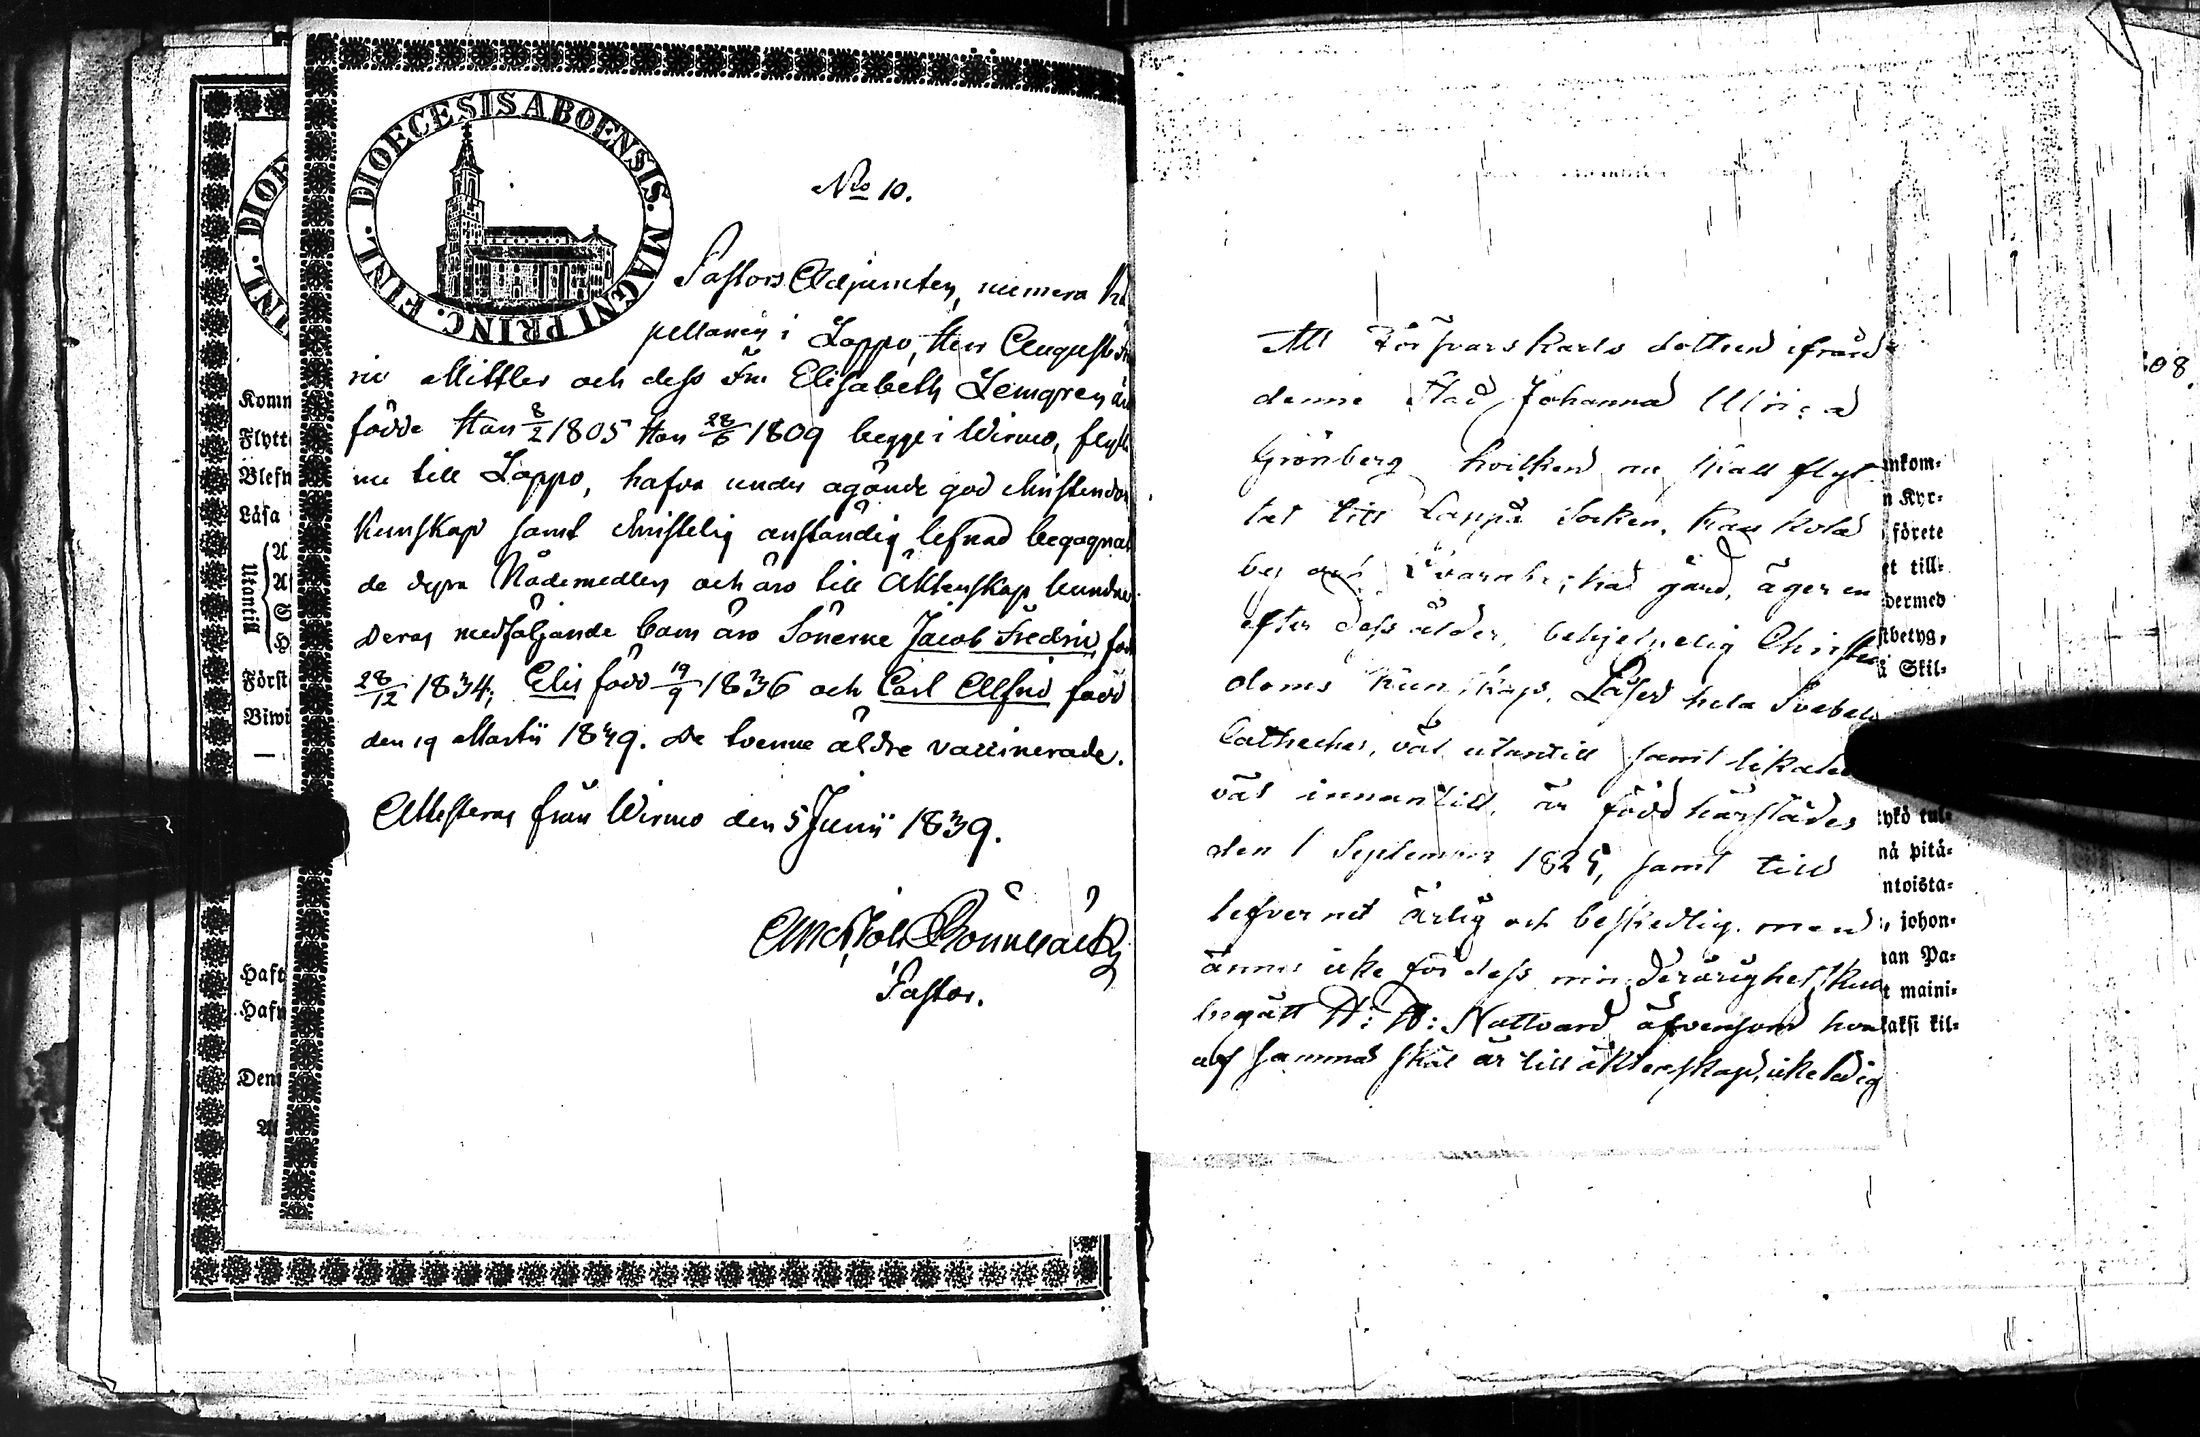 DIOECESIS ABOENSIS. MAGNI PRINC. FINL.
No 10.
Pastors Adjuncten, numera Ka
pellanen i Lappo, Herr August
ric Mittler och dess Fru Elisabeth Lemgren är
födde Han 8/2 1805 Hon 28/6 1809 begge i Wirmo, flytt
nu till Lappo, hafva under ägande god Christendom
Kunskap samt Christelig anständig lefnad begagnat
de dyra Nådemedlen och äro till Äktenskap bundne.
Deras medföljande barn äro Sönerne Jacob Fredric, föd
28/12 1834; Elis född 19/9 1836 och Carl Alfrid född
den 19 Martii 1839. De tvenne äldre vaccinerade.
Attesteras från Wirmo den 5 Junii 1839.
Pastor.
DIOE
INL.
Komm
Flytt
Blefn
Läsa
Utantill
Först
Biwi
Haft
Hafn
Dem
Att Försvars Karls dottren ifrån
denne Stad Johanna Ulrica
Grönberg hvilken nu skall flyt
tat till Lappo Socken,
by och gård, äger en
efter dess ålder, behjelpelig Christen
doms kunskap. Läser hela Svebeli
Catheches, väl utantill samt likaledes
väl innantill, är född härstädes
den 1 September 1825, samt till
lefvernet ärlig och beskedlig men
ännu icke för dess minderårighet skull
begått H: H: Nattvard äfvensom hon
af samma skäl är till äktenskap icke ledig
108
inkom-
n Kyr-
förete
et till-
dermed
stbetyg,
å Skil-
nå pitä-
ntoista-
johon-
tan Pa-
t maini-
kaksi kil-